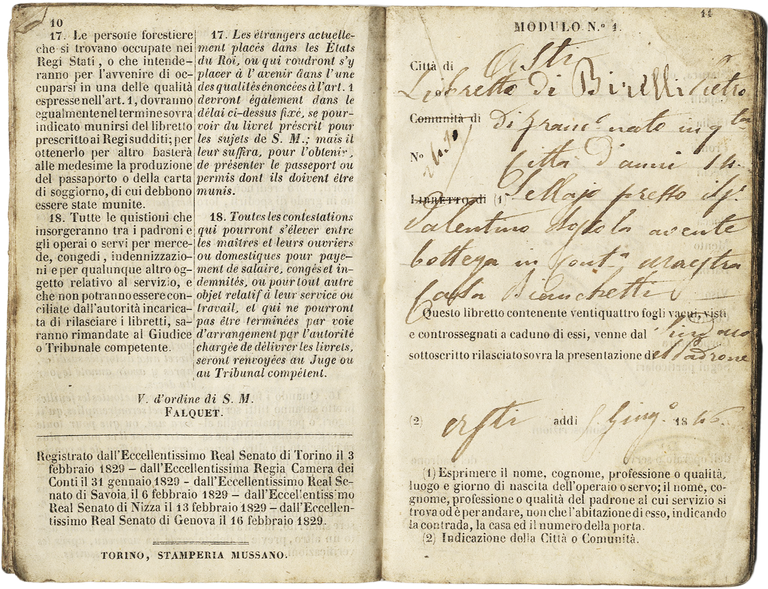 10
17. Le persone forestiere
che si trovano occupate nei
Regi Stati, o che intende-
ranno per l'avvenire di oc-
cuparsi in una delle qualità
espresse nell'art. 1, dovranno
egualmente nel termine sovra
indicato munirsi del libretto
prescritto ai Regi sudditi; per
ottenerlo per altro basterà
alle medesime la produzione
del passaporto o della carta
di soggiorno, di cui debbono
essere state munite.
18. Tutte le quistioni che
insorgeranno tra i padroni e
gli operai o servi per merce-
de, congedi, indennizzazio-
ni e per qualunque altro og-
getto relativo al servizio, e
che non potranno essere con-
ciliate dall'autorità incarica-
ta di rilasciare i libretti, sa-
ranno rimandate al Giudice
o Tribunale competente.
17. Les étrangers actuelle-
ment placés dans les États
du Roi, ou qui voudront s'y
placer à l'avenir dans l'une
des qualités énoncées à l'art. 1
devront également dans le
délai ci-dessus fixé, se pour-
voir du livret préscrit pour
les sujets de S. M.; mais il
leur suffira, pour l'obtenir,
de présenter le passeport ou
permis dont ils doivent être
munis.
18. Toutes les contestations
qui pourront s'élever entre
les maîtres et leurs ouvriers
ou domestiques pour paye-
ment de salaire, congés et in-
demnités, ou pour tout autre
objet relatif à leur service ou
travail, et qui ne pourront
pas être terminées par voie
d'arrangement par l'autorité
chargée de délivrer les livrets,
seront renvoyées au Juge ou
au Tribunal compétent.
V. d'ordine di S. M.
FALQUET.
Registrato dall'Eccellentissimo Real Senato di Torino il 3
febbraio 1829 – dall'Eccellentissima Regia Camera dei
Conti il 31 gennaio 1829 - dall'Eccellentissimo Real Se-
nato di Savoia il 6 febbraio 1829 – dall'Eccellentissimo
Real Senato di Nizza il 13 febbraio 1829 – dall'Eccellen-
tissimo Real Senato di Genova il 16 febbraio 1829.
TORINO, STAMPERIA MUSSANO.
11
MODULO N.° 1.
Città di Asti
Libretto di Birelli Pietro
Comunità di di Franc. nato in q.ta
N° città d'anni 14
LIBRETTO di (1) Sellajo presso il
avente
bottega in maestra
Casa Bianchetti
Questo libretto contenente ventiquattro fogli vacui, visti
e controssegnati a caduno di essi, venne dal Sindaco
sottoscritto rilasciato sovra la presentazione del Padrone
(2) Asti addì Giug.° 1846.
(1) Esprimere il nome, cognome, professione o qualità,
luogo e giorno di nascita dell'operaio o servo; il nome, co-
gnome, professione o qualità del padrone al cui servizio si
trova od è per andare, non che l'abitazione di esso, indicando
la contrada, la casa ed il numero della porta.
(2) Indicazione della Città o Comunità.